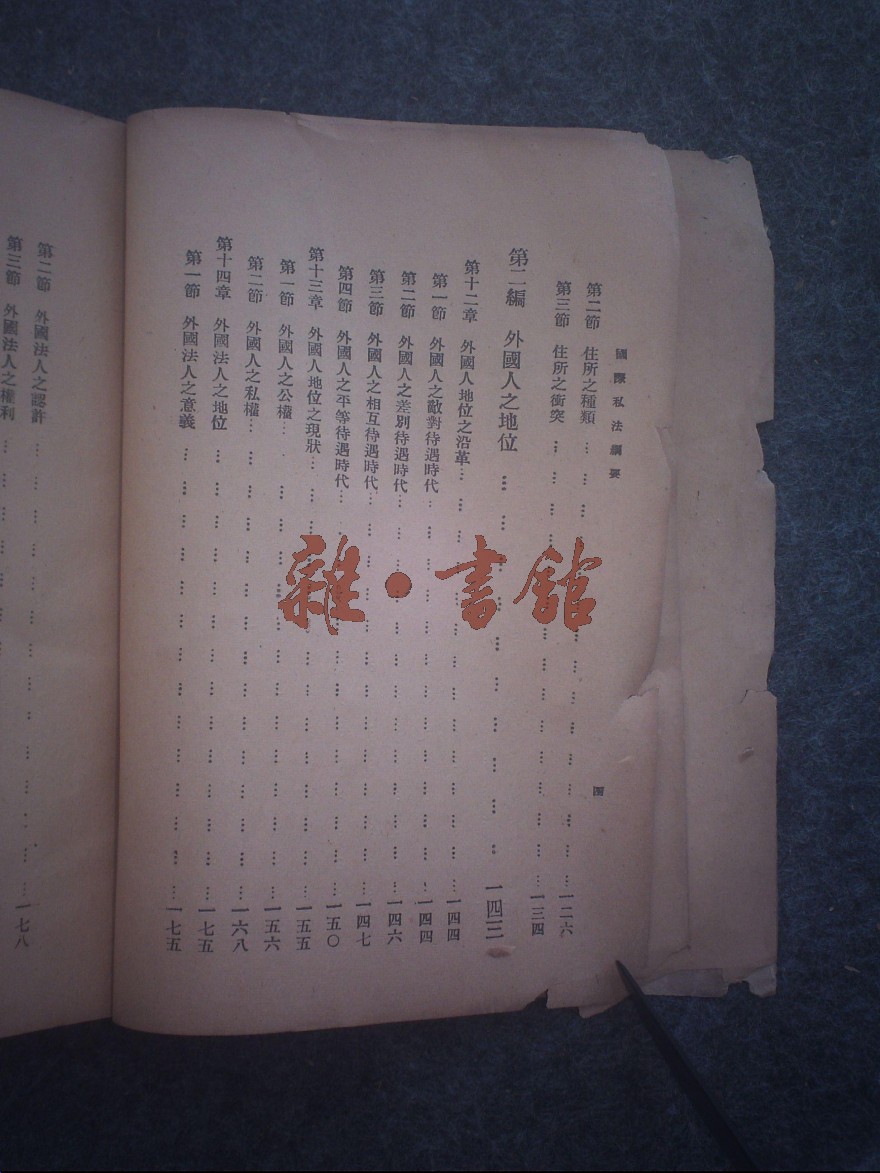 國際私法綱要
四
第二節 住所之種類 一二六
第三節 住所之衝突 一三四
第二編 外國人之地位 一四三
第十二章 外國人地位之沿革 一四四
第一節 外國人之敵對待遇時代 一四四
第二節 外國人之差別待遇時代 一四六
第三節 外國人之相互待遇時代 一四七
第四節 外國人之平等待遇時代 一五〇
第十三章 外國人地位之現狀 一五五
第一節 外國人之公權 一五六
第二節 外國人之私權 一六八
第十四章 外國法人之地位 一七五
第一節 外國法人之意義 一七五
第二節 外國法人之認許 一七八
第三節 外國法人之權利
雜·書館